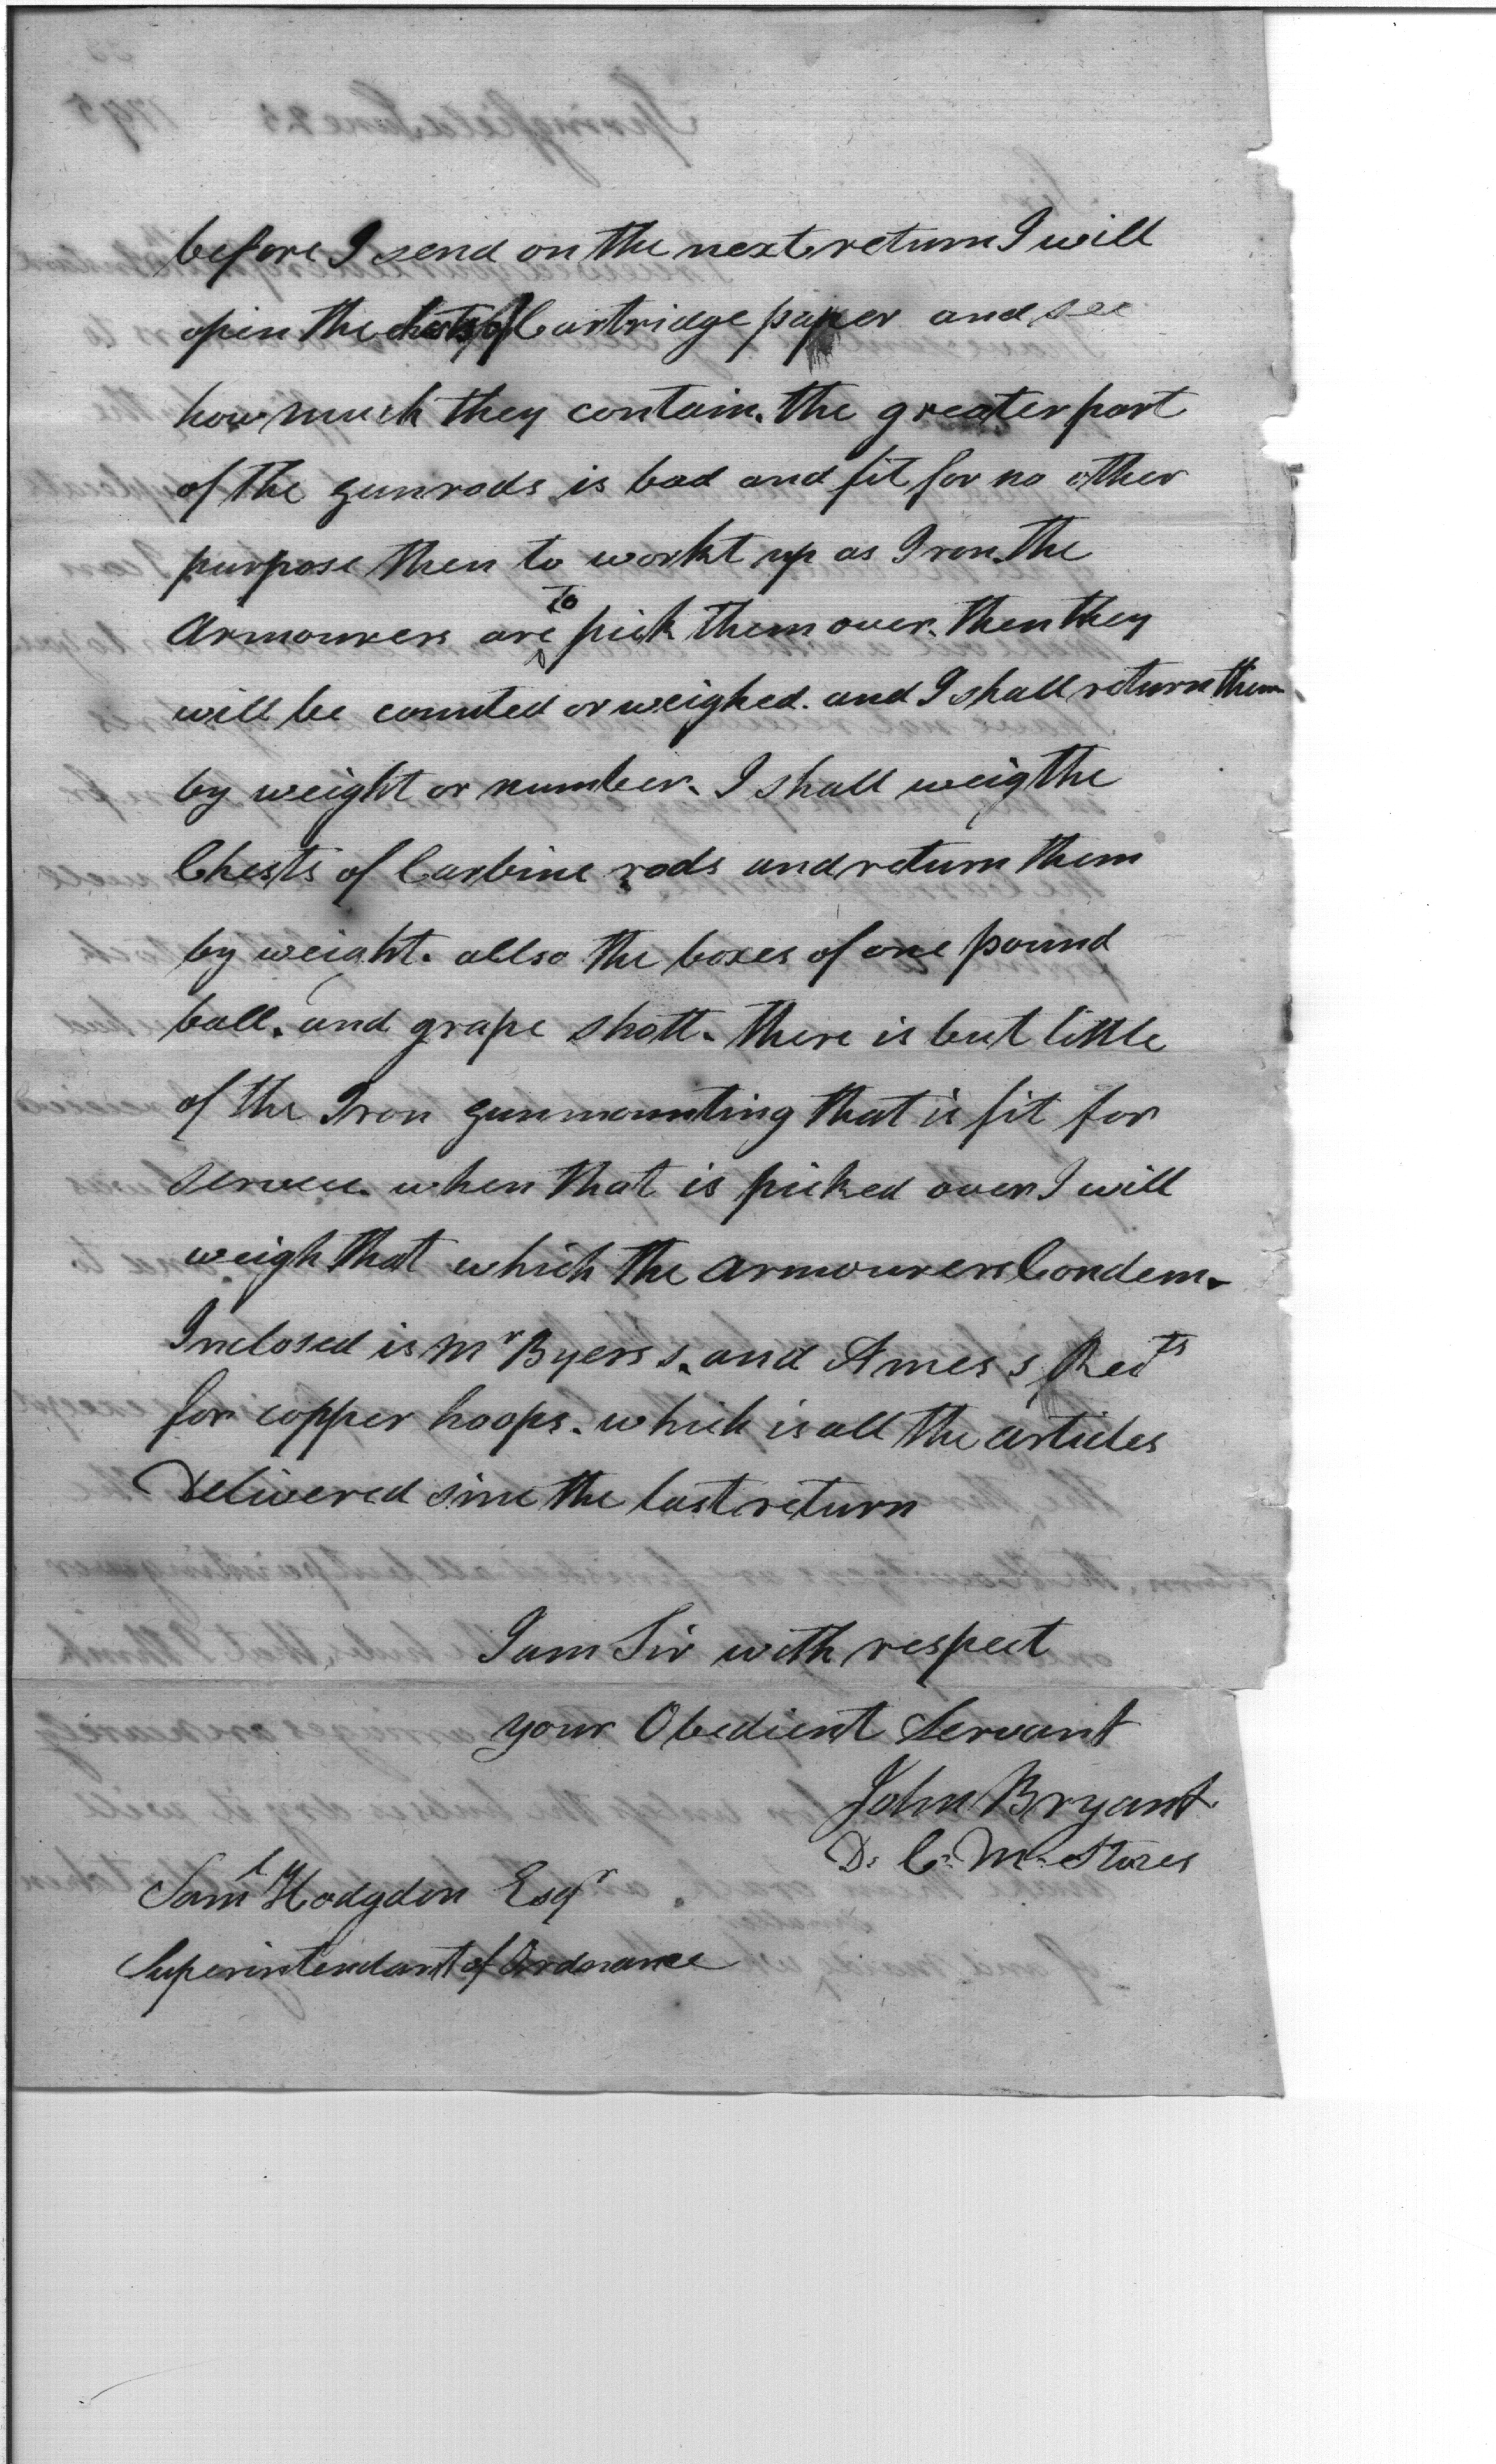 before I send on the next return I will
open the chests of Cartridge paper and see
how much they contain. the greater part
of the gunrods is bad and fit for no other
purpose then to workt up as Iron. the
Armourers are to pick them over. then they
will be counted or weighed. and I shall return them
by weight or number. I shall weig the
Chests of Carbine rods and return them
by weight. allso the boxes of one pound
ball. and grape shott. there is but little
of the Iron gunmounting that is fit for
service. when that is picked over I will
weigh that which the armourers Condem.
Inclosed is Mr Byers s. and Ames s Rects
for copper hoops. which is all the articles
Delivered since the last return
I am Sir with respect
your Obedient Servant
John Bryant
D. C. M. Stores
Saml Hodgdon Esqr
Superintendant of Ordnance